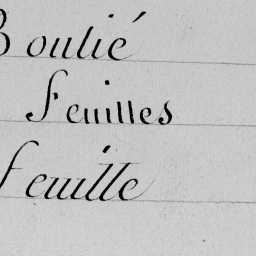 Boulié
Feuilles
Feuille